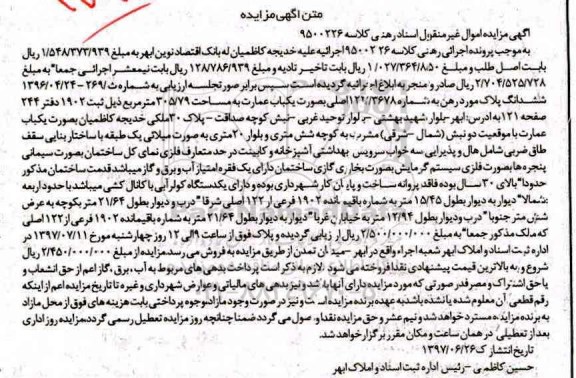 متن آگهی مزایده
آگهی مزایده اموال غیر منقول اسناد رهنی کلاسه ۹۵۰۰۲۲۶
به موجب پرونده اجرائی رهنی کلاسه ۹۵۰۰۲۲۶ اجرائیه علیه خدیجه کاظمیان له بانک اقتصاد نوین ابهر به مبلغ ۱/۵۴۸/۳۷۳/۹۳۹ ریال
بابت اصل طلب و مبلغ ۱/۰۲۷/۳۶۴/۸۵۰ ریال بابت تاخیر تادیه و مبلغ ۱۲۸/۷۸۶/۹۳۹ ریال بابت نیمعشر اجرائی جمعا" به مبلغ
۲/۷۰۴/۵۲۵/۷۲۸ ریال صادر و منجر به ابلاغ اجرائیه گردیده است سپس برابر صورتجلسه ارزیابی به شماره ث/۲۶۹ - ۱۳۹۶/۰۴/۲۴
ششدانگ پلاک مورد رهن به شماره ۱۲۲/۳۶۷۸ اصلی بصورت یکباب عمارت به مساحت ۳۰۵/۷۹ متر مربع ذیل ثبت ۱۹۰۲ دفتر ۲۴۴
صفحه ۱۲۱ به ادرس: ابهر -بلوار شهید بهشتی - بلوار توحید غربی -نبش کوچه صداقت - پلاک ۳۰ ملکی خدیجه کاظمیان بصورت یکباب
عمارت با موقعیت دو نبش (شمال - شرقی) مشرف به کوچه شش متری و بلوار ۲۰ متری به صورت ویلائی یک طبقه با ساختار بنایی سقف
طاق ضربی شامل هال و پذیرایی سه خواب سرویس بهداشتی آشپزخانه و کابینت در حد متعارف فلزی نمای کل ساختمان بصورت سیمانی
پنجره ها بصورت فلزی سیستم گرمایش بصورت بخاری گازی ساختمان دارای یک فقره امتیاز آب و برق و گاز میباشد قدمت ساختمان مذکور
حدودا" بالای ۳۰ سال بوده فاقد پروانه ساخت و پایان کار شهرداری بوده و دارای یکدستگاه کولر آبی با کانال کشی میباشد با حدود اربعه
:شمالا" دیوار به دیوار بطول ۱۵/۴۵ متر به شماره باقیمانده ۱۹۰۲ فرعی از ۱۲۲ اصلی شرقا" درب و دیوار بطول ۲۱/۶۴ متر بکوچه به عرض
شش متر جنوبا" درب و دیوار بطول ۱۲/۹۴ متر به خیابان غربا" دیوار به دیوار بطول ۲۱/۶۴ متر به شماره باقیمانده ۱۹۰۲ فرعی از ۱۲۲ اصلی
که ملک مذکور جمعا" به مبلغ ۲/۵۰۰/۰۰۰/۰۰۰ ریال ارزیابی گردیده و پلاک فوق از ساعت ۹ الی ۱۲ روز چهارشنبه مورخ ۱۳۹۷/۰۷/۱۱ در
اداره ثبت اسناد و املاک ابهر شعبه اجراء واقع در ابهر - میدان تمدن از طریق مزایده به فروش می رسد مزایده از مبلغ ۲/۴۵۰/۰۰۰/۰۰۰ ریال
شروع و به بالاترین قیمت پیشنهادی نقدا فروخته می شود لازم به ذکر است پرداخت بدهی های مربوط به آب، برق، گاز اعم از حق انشعاب و
یا حق اشتراک و مصرف در صورتی که مورد مزایده دارای آنها باشد و نیز بدهی های مالیاتی و عوارض شهرداری و غیره تا تاریخ مزایده اعم از اینکه
رقم قطعی آن معلوم شده یا نشده باشد به عهده برنده مزایده است و نیز در صورت وجود مازاد وجوه پرداختی بابت هزینه های فوق از محل مازاد
به برنده مزایده مسترد خواهد شد و نیم عشر و حق مزایده نقدا وصول می گردد ضمنا چنانچه روز مزایده تعطیل رسمی گردد، مزایده روز اداری
بعد از تعطیلی در همان ساعت و مکان مقرر برگزار خواهد شد.
تاریخ انتشار ک ۱۳۹۷/۰۶/۲۶
حسین کاظمی - رئیس اداره ثبت اسناد و املاک ابهر